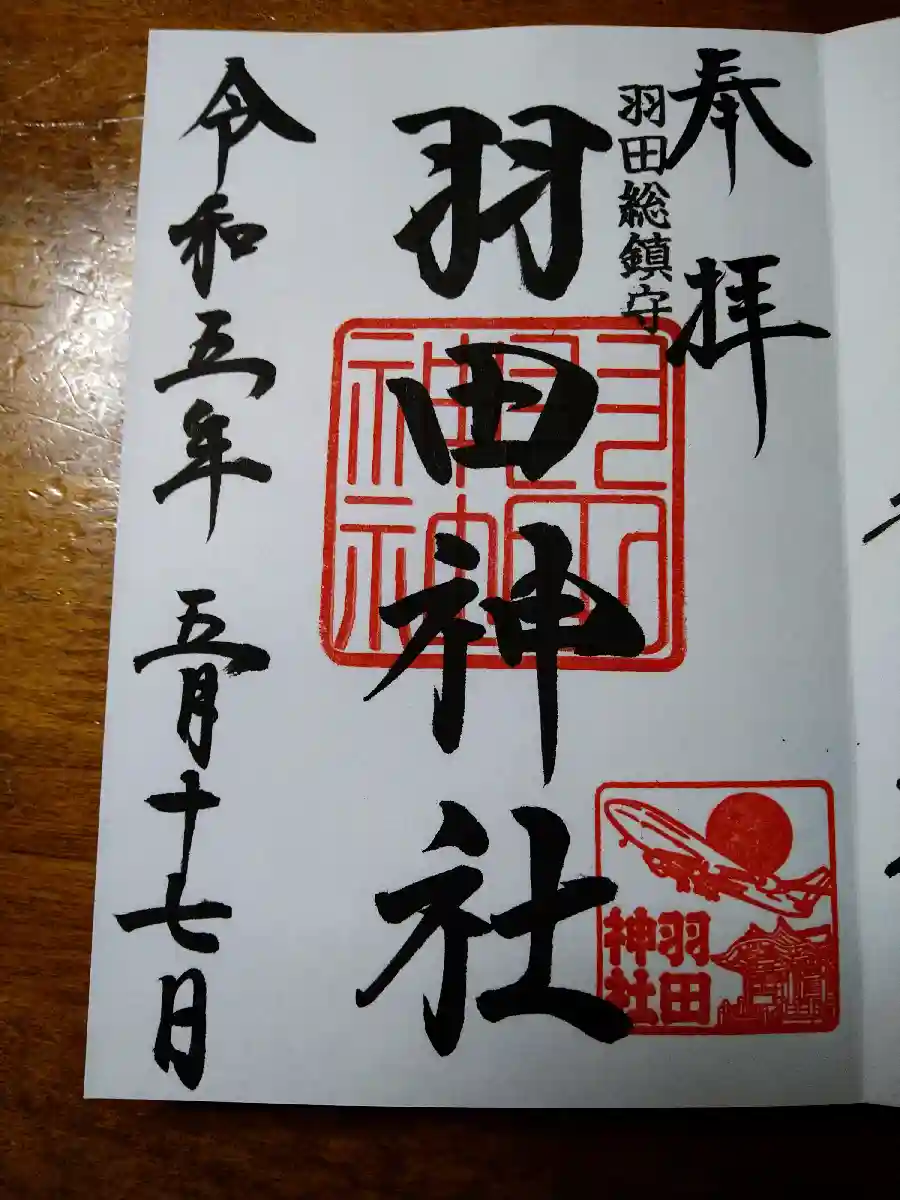 奉拝
羽田総鎮守
羽田神社
羽田神社
令和五年 五月十七日